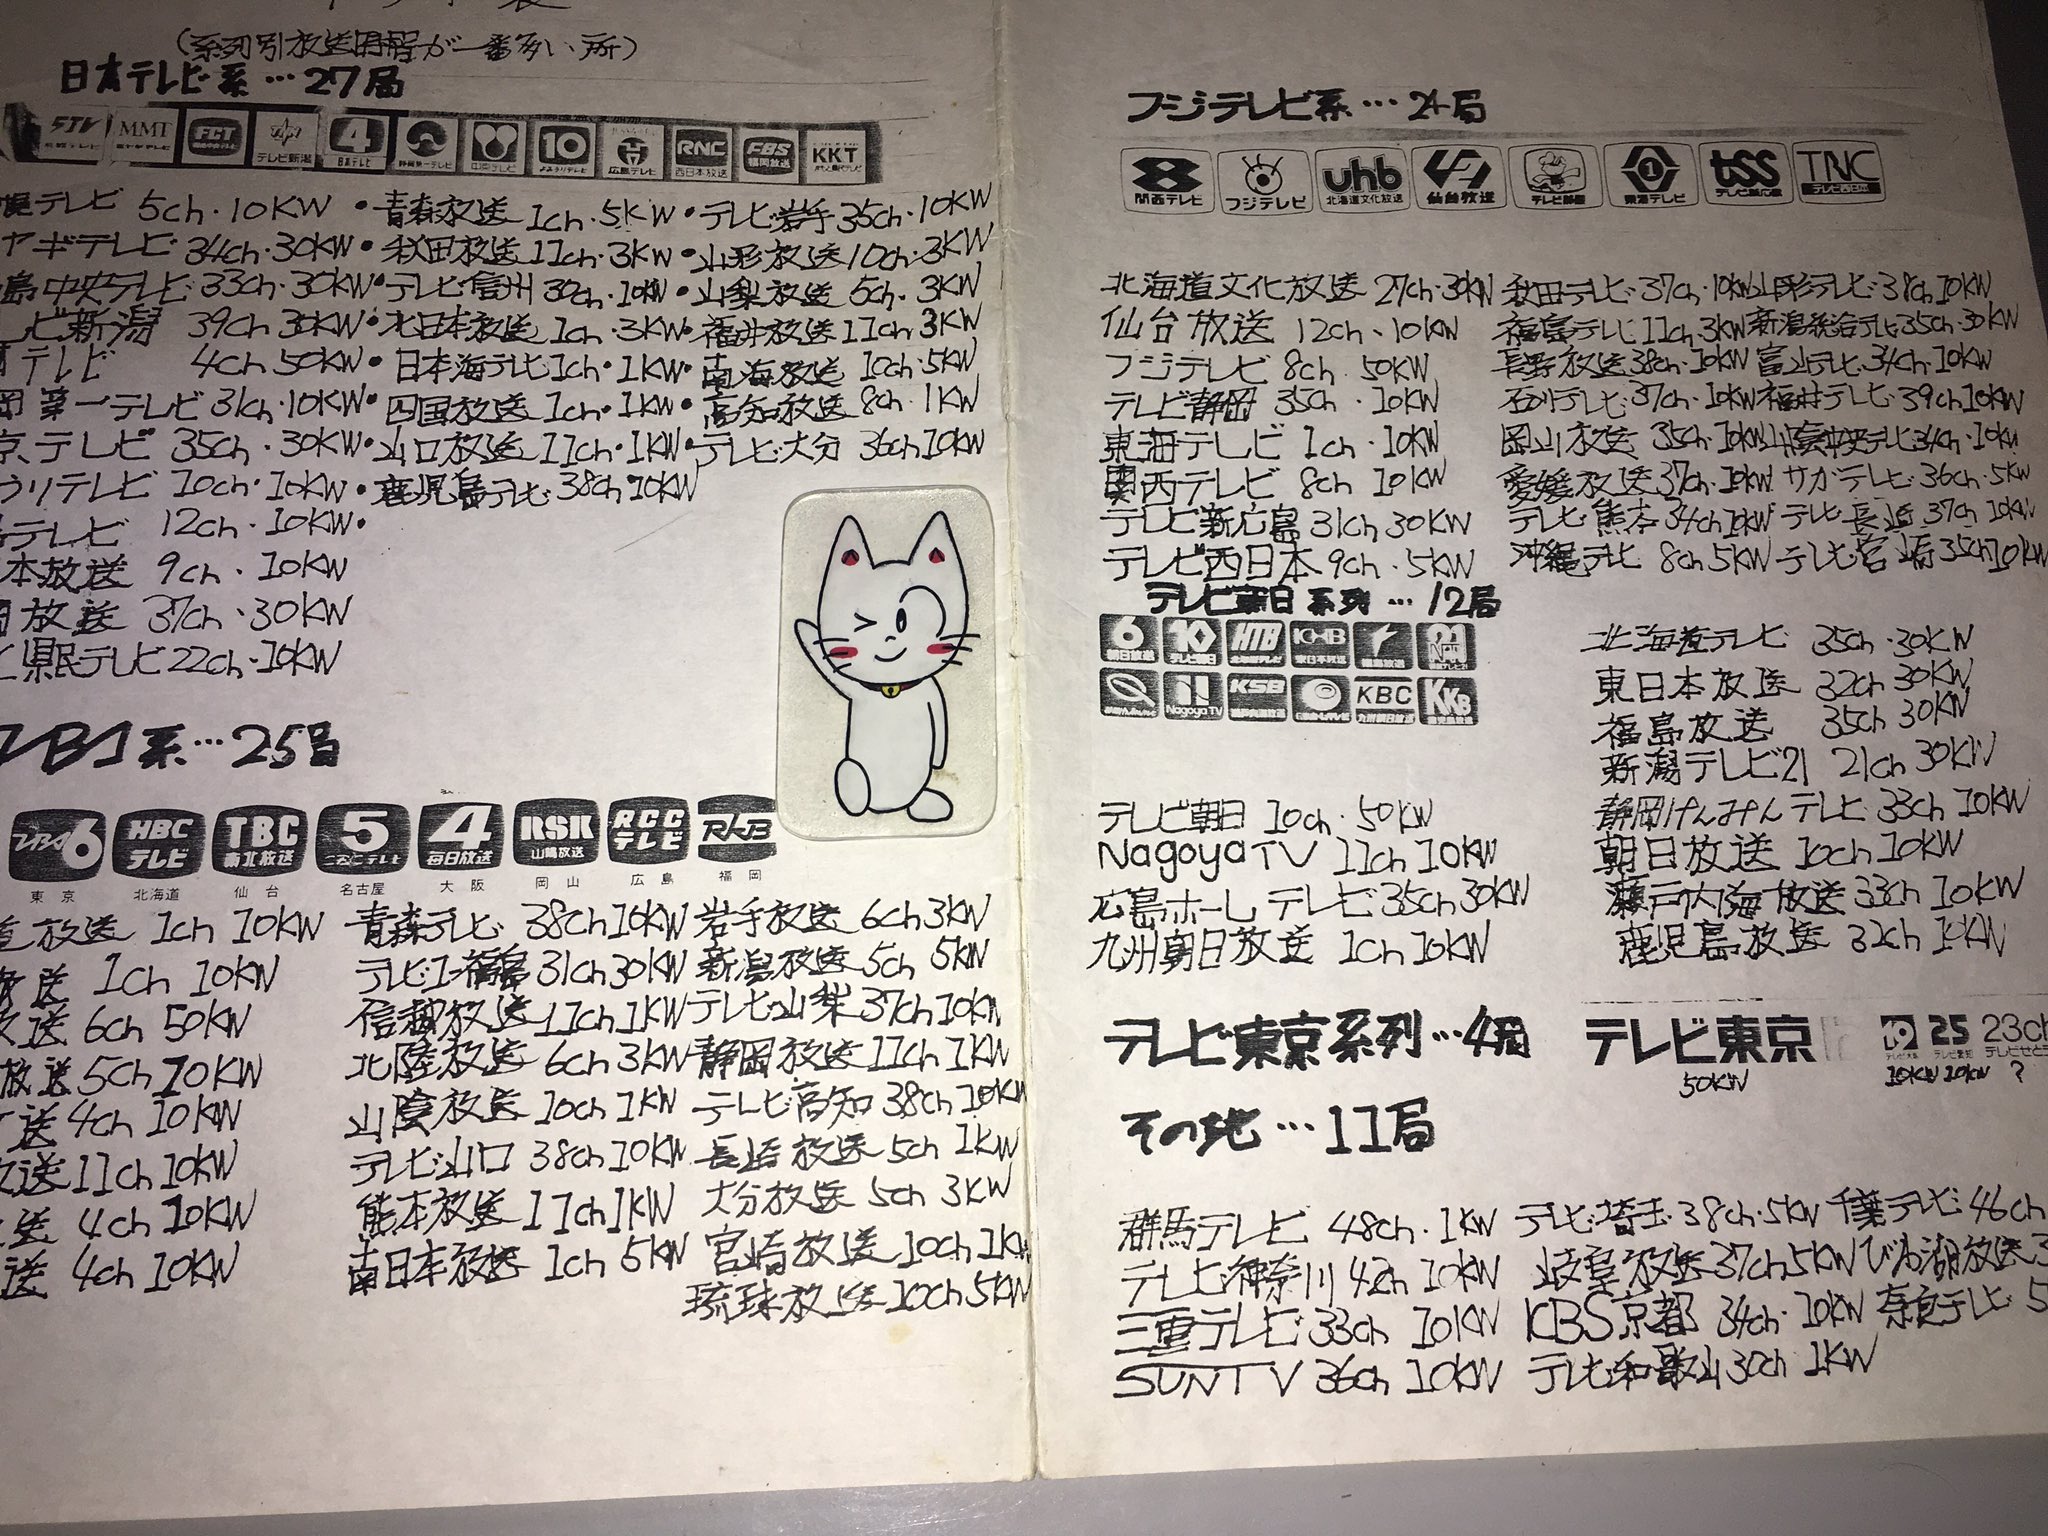 (系列別放送用語が一番多い所)
日本テレビ系…27局
STV MMT FCT テレビ新潟 4 日本テレビ 静岡第一テレビ 中京テレビ 10 よみうりテレビ 広島テレビ RNC 西日本放送 FBS 福岡放送 KKT
幌テレビ 5ch・10KW ・青森放送 1ch・5KW ・テレビ岩手 35ch・10KW
ヤギテレビ 34ch・30KW・秋田放送 11ch・3KW・山形放送 10ch・3KW
島中央テレビ 33ch・30KW・テレビ信州 30ch・10KW・山梨放送 5ch・3KW
レビ新潟 39ch 30KW・北日本放送 1ch・3KW・福井放送 11ch 3KW
テレビ 4ch 50KW・日本海テレビ 1ch・1KW・南海放送 10ch・5KW
岡第一テレビ 31ch・10KW・四国放送 1ch・1KW・高知放送 8ch・1KW
京テレビ 35ch・30KW・山口放送 11ch・1KW・テレビ大分 36ch 10KW
うリテレビ 10ch・10KW・鹿児島テレビ 38ch・10KW
テレビ 12ch・10KW・
本放送 9ch・10KW
放送 37ch・30KW
県民テレビ 22ch・10KW
TBS系…25局
TBS6 HBCテレビ TBC東北放送 5 4毎日放送 RSK山陽放送 RCCテレビ RKB
東京 北海道 仙台 名古屋 大阪 岡山 広島 福岡
道放送 1ch 10KW 青森テレビ 38ch 10KW 岩手放送 6ch 3KW
放送 1ch 10KW テレビユー福島 31ch 30KW 新潟放送 5ch 5KW
放送 6ch 50KW 信越放送 11ch 1KW テレビ山梨 37ch 10KW
放送 5ch 10KW 北陸放送 6ch 3KW 静岡放送 11ch 1KW
送 4ch 10KW 山陰放送 10ch 1KW テレビ高知 38ch 10KW
放送 11ch 10KW テレビ山口 38ch 10KW 長崎放送 5ch 1KW
送 4ch 10KW 熊本放送 11ch 1KW 大分放送 5ch 3KW
送 4ch 10KW 南日本放送 1ch 5KW 宮崎放送 10ch 1KW
琉球放送 10ch 5KW
フジテレビ系…24局
関西テレビ フジテレビ uhb 北海道文化放送 仙台放送 テレビ静岡 東海テレビ tss テレビ新広島 TNC テレビ西日本
北海道文化放送 27ch・30KW 秋田テレビ 37ch・10KW 山形テレビ 38ch 10KW
仙台放送 12ch・10KW 福島テレビ 11ch 3KW 新潟総合テレビ 35ch・30KW
フジテレビ 8ch 50KW 長野放送 38ch・10KW 富山テレビ 34ch・10KW
テレビ静岡 35ch・10KW 石川テレビ 37ch・10KW 福井テレビ 39ch 10KW
東海テレビ 1ch・10KW 岡山放送 35ch・10KW 山陰中央テレビ 34ch・10KW
関西テレビ 8ch 10KW 愛媛放送 37ch・10KW サガテレビ 36ch・5KW
テレビ新広島 31ch 30KW テレビ熊本 34ch 10KW テレビ長崎 37ch 10KW
テレビ西日本 9ch・5KW 沖縄テレビ 8ch 5KW テレビ宮崎 35ch 10KW
テレビ朝日系列…12局
6 朝日放送 10 テレビ朝日 HTB 北海道テレビ KHB 東日本放送 福島放送 21
Nagoya TV KSB 瀬戸内海放送 KBC 九州朝日放送 KKB 鹿児島放送
北海道テレビ 35ch・30KW
東日本放送 32ch 30KW
福島放送 35ch 30KW
新潟テレビ21 21ch 30KW
テレビ朝日 10ch・50KW 静岡けんみんテレビ 33ch 10KW
NagoyaTV 11ch 10KW 朝日放送 10ch 10KW
広島ホームテレビ 35ch 30KW 瀬戸内海放送 33ch 10KW
九州朝日放送 1ch 10KW 鹿児島放送 32ch 10KW
テレビ東京系列…4局 テレビ東京 19 25 23ch
テレビ大阪 テレビ愛知 テレビせと
50KW 10KW 10KW ?
その他…11局
群馬テレビ 48ch・1KW テレビ埼玉 38ch・5KW 千葉テレビ 46ch
テレビ神奈川 42ch 10KW 岐阜放送 37ch 5KW びわ湖放送 3
三重テレビ 33ch 10KW KBS京都 34ch・10KW 奈良テレビ 5
SUNTV 36ch 10KW テレビ和歌山 30ch 1KW